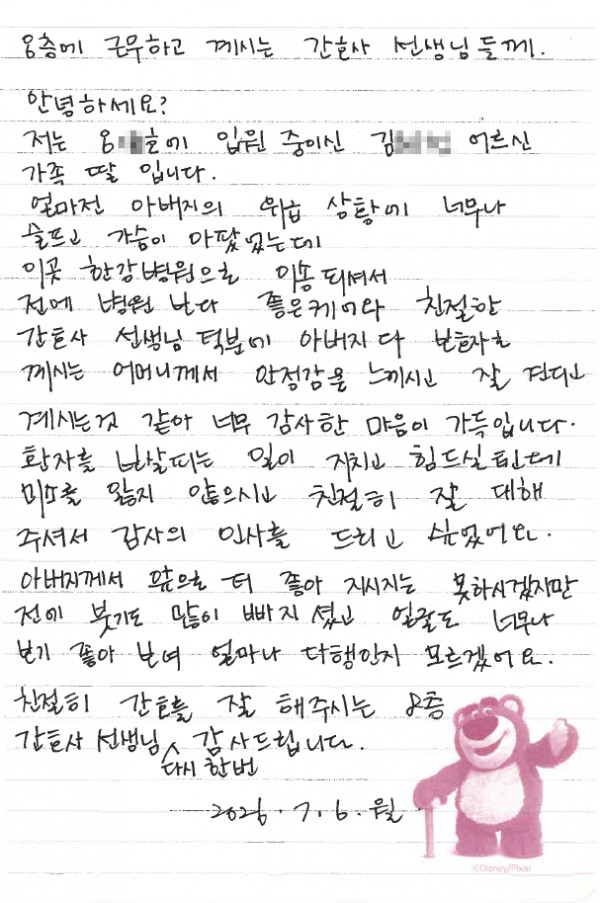 8층에 근무하고 계시는 간호사 선생님들께.
안녕하세요?
저는 8 호에 입원 중이신 김 어르신
가족 딸 입니다.
얼마전 아버지의 위급 상황에 너무나
슬프고 가슴이 아팠었는데
이곳 한강병원으로 이송되셔서
전에 병원 보다 좋은케어와 친절한
간호사 선생님 덕분에 아버지다 보호자로
계시는 어머니께서 안정감을 느끼시고 잘 견디고
계시는것 같아 너무 감사한 마음이 가득입니다.
환자를 보살피는 일이 지치고 힘드실텐데
미소를 잃지 않으시고 친절히 잘 대해
주셔서 감사의 인사를 드리고 싶었어요.
아버지께서 앞으로 더 좋아 지시지는 못하시겠지만
전에 붓기도 많이 빠지셨고 얼굴도 너무나
보기 좋아 보여 얼마나 다행인지 모르겠어요.
친절히 간호를 잘 해주시는 8층
간호사 선생님 감사드립니다.
다시 한번
2026. 7. 6. 월
©Disney/Pixar